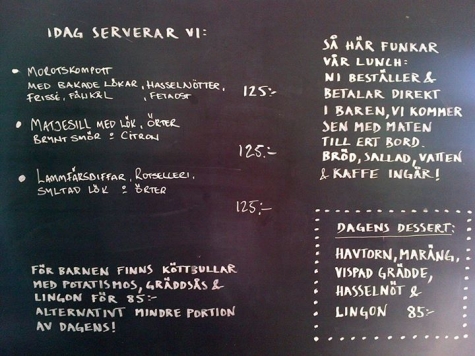 IDAG SERVERAR VI:
• MOROTSKOMPOTT
MED BAKADE LÖKAR, HASSELNÖTTER,
FRISSÉ, FÄNKÅL, FETAOST 125:-
• MATJESILL MED LÖK, ÖRTER
BRYNT SMÖR & CITRON
125:-
• LAMMFÄRSBIFFAR, ROTSELLERI,
SYLTAD LÖK & ÖRTER
125:-
FÖR BARNEN FINNS KÖTTBULLAR
MED POTATISMOS, GRÄDDSÅS &
LINGON FÖR 85:-
ALTERNATIVT MINDRE PORTION
AV DAGENS!
SÅ HÄR FUNKAR
VÅR LUNCH:
NI BESTÄLLER &
BETALAR DIREKT
I BAREN, VI KOMMER
SEN MED MATEN
TILL ERT BORD.
BRÖD, SALLAD, VATTEN
& KAFFE INGÅR!
DAGENS DESSERT:
HAVTORN, MARÄNG,
VISPAD GRÄDDE,
HASSELNÖT &
LINGON 85:-